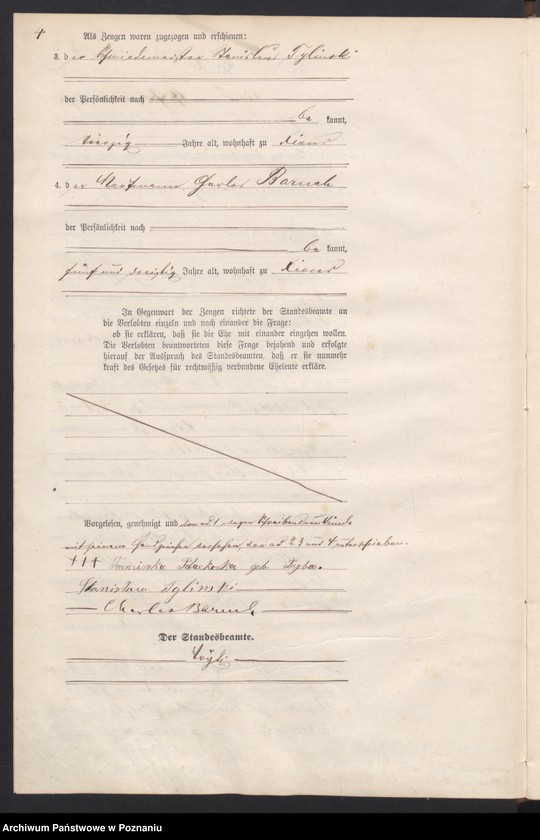 Als Zeugen waren zugezogen und erschienen:
3. der Schmiedemeister Stanislaus Tylinski
der Persönlichkeit nach
be kannt,
vierzig Jahre alt, wohnhaft zu Xions
4. der Kaufmann Charles Baruch
der Persönlichkeit nach
be kannt,
fünf und dreißig Jahre alt, wohnhaft zu Xions
In Gegenwart der Zeugen richtete der Standesbeamte an
die Verlobten einzeln und nach einander die Frage:
ob sie erklären, daß sie die Ehe mit einander eingehen wollen.
Die Verlobten beantworteten diese Frage bejahend und erfolgte
hierauf der Ausspruch des Standesbeamten, daß er sie nunmehr
kraft des Gesetzes für rechtmäßig verbundene Eheleute erkläre.
Vorgelesen, genehmigt und von ad 1 wegen Schreibensunkunde
mit seinem Handzeichen versehen, von ad 2 3 und 4 unterschrieben.
+++ Franciszka geb.
Stanisław Tylinski
Charles Baruch
Der Standesbeamte.
Archiwum Państwowe w Poznaniu